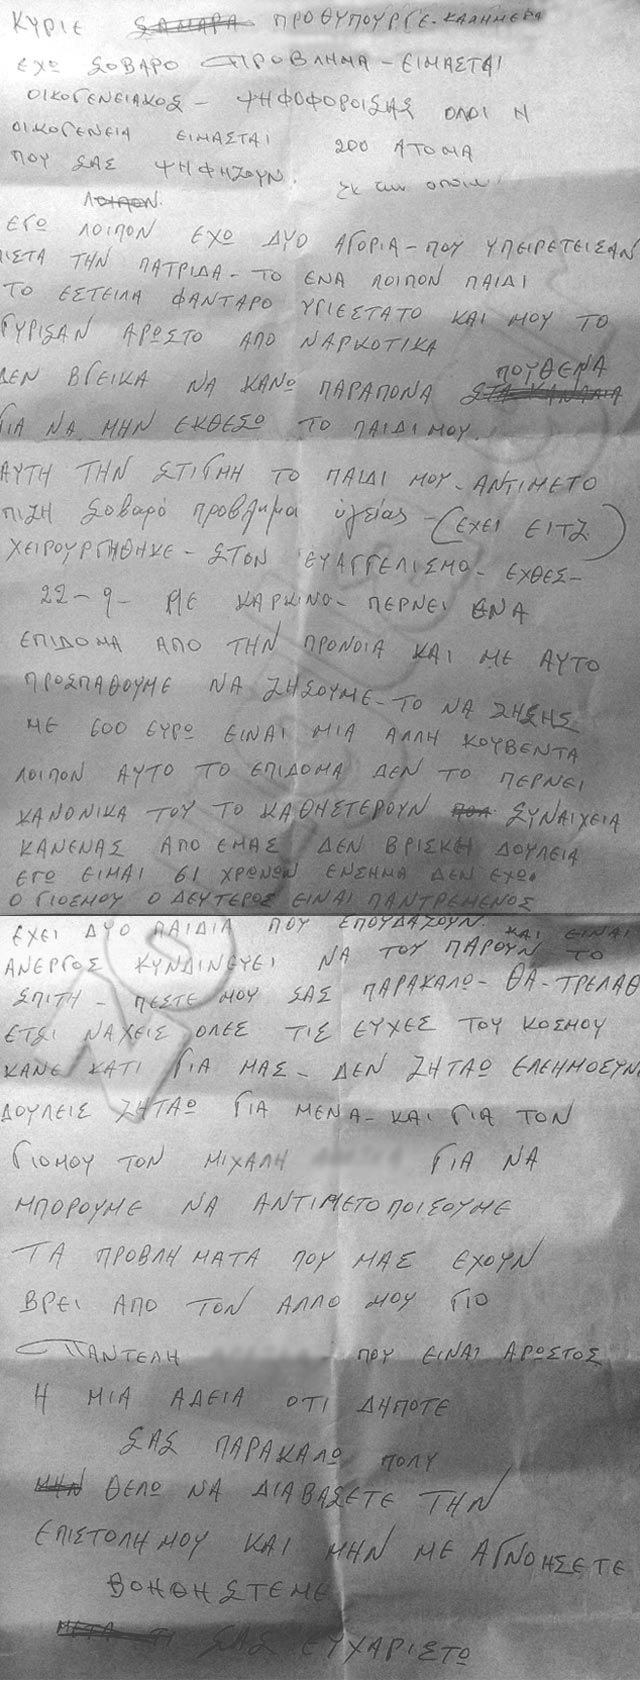 ΚΥΡΙΕ ΣΑΜΑΡΑ ΠΡΟΘΥΠΟΥΡΓΕ - ΚΑΛΗΜΕΡΑ
ΕΧΩ ΣΟΒΑΡΟ ΠΡΟΒΛΗΜΑ - ΕΙΜΑΣΤΑΙ
ΟΙΚΟΓΕΝΕΙΑΚΟΣ - ΨΗΦΟΦΟΡΟΙΣΑΣ ΟΛΟΙ Η
ΟΙΚΟΓΕΝΕΙΑ ΕΙΜΑΣΤΑΙ 200 ΑΤΟΜΑ
ΠΟΥ ΣΑΣ ΨΗΦΗΖΟΥΝ.
ΛΟΙΠΟΝ.
ΕΓΩ ΛΟΙΠΟΝ ΕΧΩ ΔΥΟ ΑΓΟΡΙΑ - ΠΟΥ ΥΠΕΙΡΕΤΕΙΣΑΝ
ΠΙΣΤΑ ΤΗΝ ΠΑΤΡΙΔΑ - ΤΟ ΕΝΑ ΛΟΙΠΟΝ ΠΑΙΔΙ
ΤΟ ΕΣΤΕΙΛΑ ΦΑΝΤΑΡΟ ΥΓΙΕΣΤΑΤΟ ΚΑΙ ΜΟΥ ΤΟ
ΓΥΡΙΣΑΝ ΑΡΩΣΤΟ ΑΠΟ ΝΑΡΚΟΤΙΚΑ
ΔΕΝ ΒΓΕΙΚΑ ΝΑ ΚΑΝΩ ΠΑΡΑΠΟΝΑ ΣΤΑ ΚΑΝΑΛΙΑ ΠΟΥΘΕΝΑ
ΓΙΑ ΝΑ ΜΗΝ ΕΚΘΕΣΩ ΤΟ ΠΑΙΔΙ ΜΟΥ.
ΑΥΤΗ ΤΗΝ ΣΤΙΓΜΗ ΤΟ ΠΑΙΔΙ ΜΟΥ - ΑΝΤΙΜΕΤΟ
ΠΙΖΗ Σοβαρό πρόβλημα ύγείας - (ΕΧΕΙ ΕΙΤΖ)
ΧΕΙΡΟΥΡΓΗΘΗΚΕ - ΣΤΟΝ ΕΥΑΓΓΕΛΙΣΜΟ - ΕΧΘΕΣ -
22 - 9 - ΜΕ ΚΑΡΚΙΝΟ - ΠΕΡΝΕΙ ΕΝΑ
ΕΠΙΔΟΜΑ ΑΠΟ ΤΗΝ ΠΡΟΝΟΙΑ ΚΑΙ ΜΕ ΑΥΤΟ
ΠΡΟΣΠΑΘΟΥΜΕ ΝΑ ΖΗΣΟΥΜΕ - ΤΟ ΝΑ ΖΗΣΗΣ
ΜΕ 600 ΕΥΡΩ ΕΙΝΑΙ ΜΙΑ ΑΛΛΗ ΚΟΥΒΕΝΤΑ
ΛΟΙΠΟΝ ΑΥΤΟ ΤΟ ΕΠΙΔΟΜΑ ΔΕΝ ΤΟ ΠΕΡΝΕΙ
ΚΑΝΟΝΙΚΑ ΤΟΥ ΤΟ ΚΑΘΗΣΤΕΡΟΥΝ ΣΥΝΑΙΧΕΙΑ
ΚΑΝΕΝΑΣ ΑΠΟ ΕΜΑΣ ΔΕΝ ΒΡΙΣΚΗ ΔΟΥΛΕΙΑ
ΕΓΩ ΕΙΜΑΙ 61 ΧΡΟΝΩΝ ΕΝΣΗΜΑ ΔΕΝ ΕΧΩ.
Ο ΓΙΟΣΜΟΥ Ο ΔΕΥΤΕΡΟΣ ΕΙΝΑΙ ΠΑΝΤΡΕΜΕΝΟΣ
ΕΧΕΙ ΔΥΟ ΠΑΙΔΙΑ ΠΟΥ ΣΠΟΥΔΑΖΟΥΝ. ΚΑΙ ΕΙΝΑΙ
ΑΝΕΡΓΟΣ ΚΥΝΔΙΝΕΥΕΙ ΝΑ ΤΟΥ ΠΑΡΟΥΝ ΤΟ
ΣΠΙΤΗ - ΠΕΣΤΕ ΜΟΥ ΣΑΣ ΠΑΡΑΚΑΛΩ - ΘΑ - ΤΡΕΛΑΘ
ΕΤΣΙ ΝΑΧΕΙΣ ΟΛΕΣ ΤΙΣ ΕΥΧΕΣ ΤΟΥ ΚΟΣΜΟΥ
ΚΑΝΕ ΚΑΤΙ ΓΙΑ ΜΑΣ - ΔΕΝ ΖΗΤΑΩ ΕΛΕΗΜΟΣΥΝ
ΔΟΥΛΕΙΣ ΖΗΤΑΩ ΓΙΑ ΜΕΝΑ - ΚΑΙ ΓΙΑ ΤΟΝ
ΓΙΟΜΟΥ ΤΟΝ ΜΙΧΑΛΗ ΓΙΑ ΝΑ
ΜΠΟΡΟΥΜΕ ΝΑ ΑΝΤΙΜΕΤΟΠΟΙΣΟΥΜΕ
ΤΑ ΠΡΟΒΛΗΜΑΤΑ ΠΟΥ ΜΑΣ ΕΧΟΥΝ
ΒΡΕΙ ΑΠΟ ΤΟΝ ΑΛΛΟ ΜΟΥ ΓΙΟ
ΠΑΝΤΕΛΗ ΠΟΥ ΕΙΝΑΙ ΑΡΩΣΤΟΣ
Η ΜΙΑ ΑΔΕΙΑ ΟΤΙ ΔΗΠΟΤΕ
ΣΑΣ ΠΑΡΑΚΑΛΩ ΠΟΛΥ
ΘΕΛΩ ΝΑ ΔΙΑΒΑΣΕΤΕ ΤΗΝ
ΕΠΙΣΤΟΛΗ ΜΟΥ ΚΑΙ ΜΗΝ ΜΕ ΑΓΝΟΗΣΕΤΕ
ΒΟΗΘΗΣΤΕΜΕ
ΣΑΣ ΕΥΧΑΡΙΣΤΩ